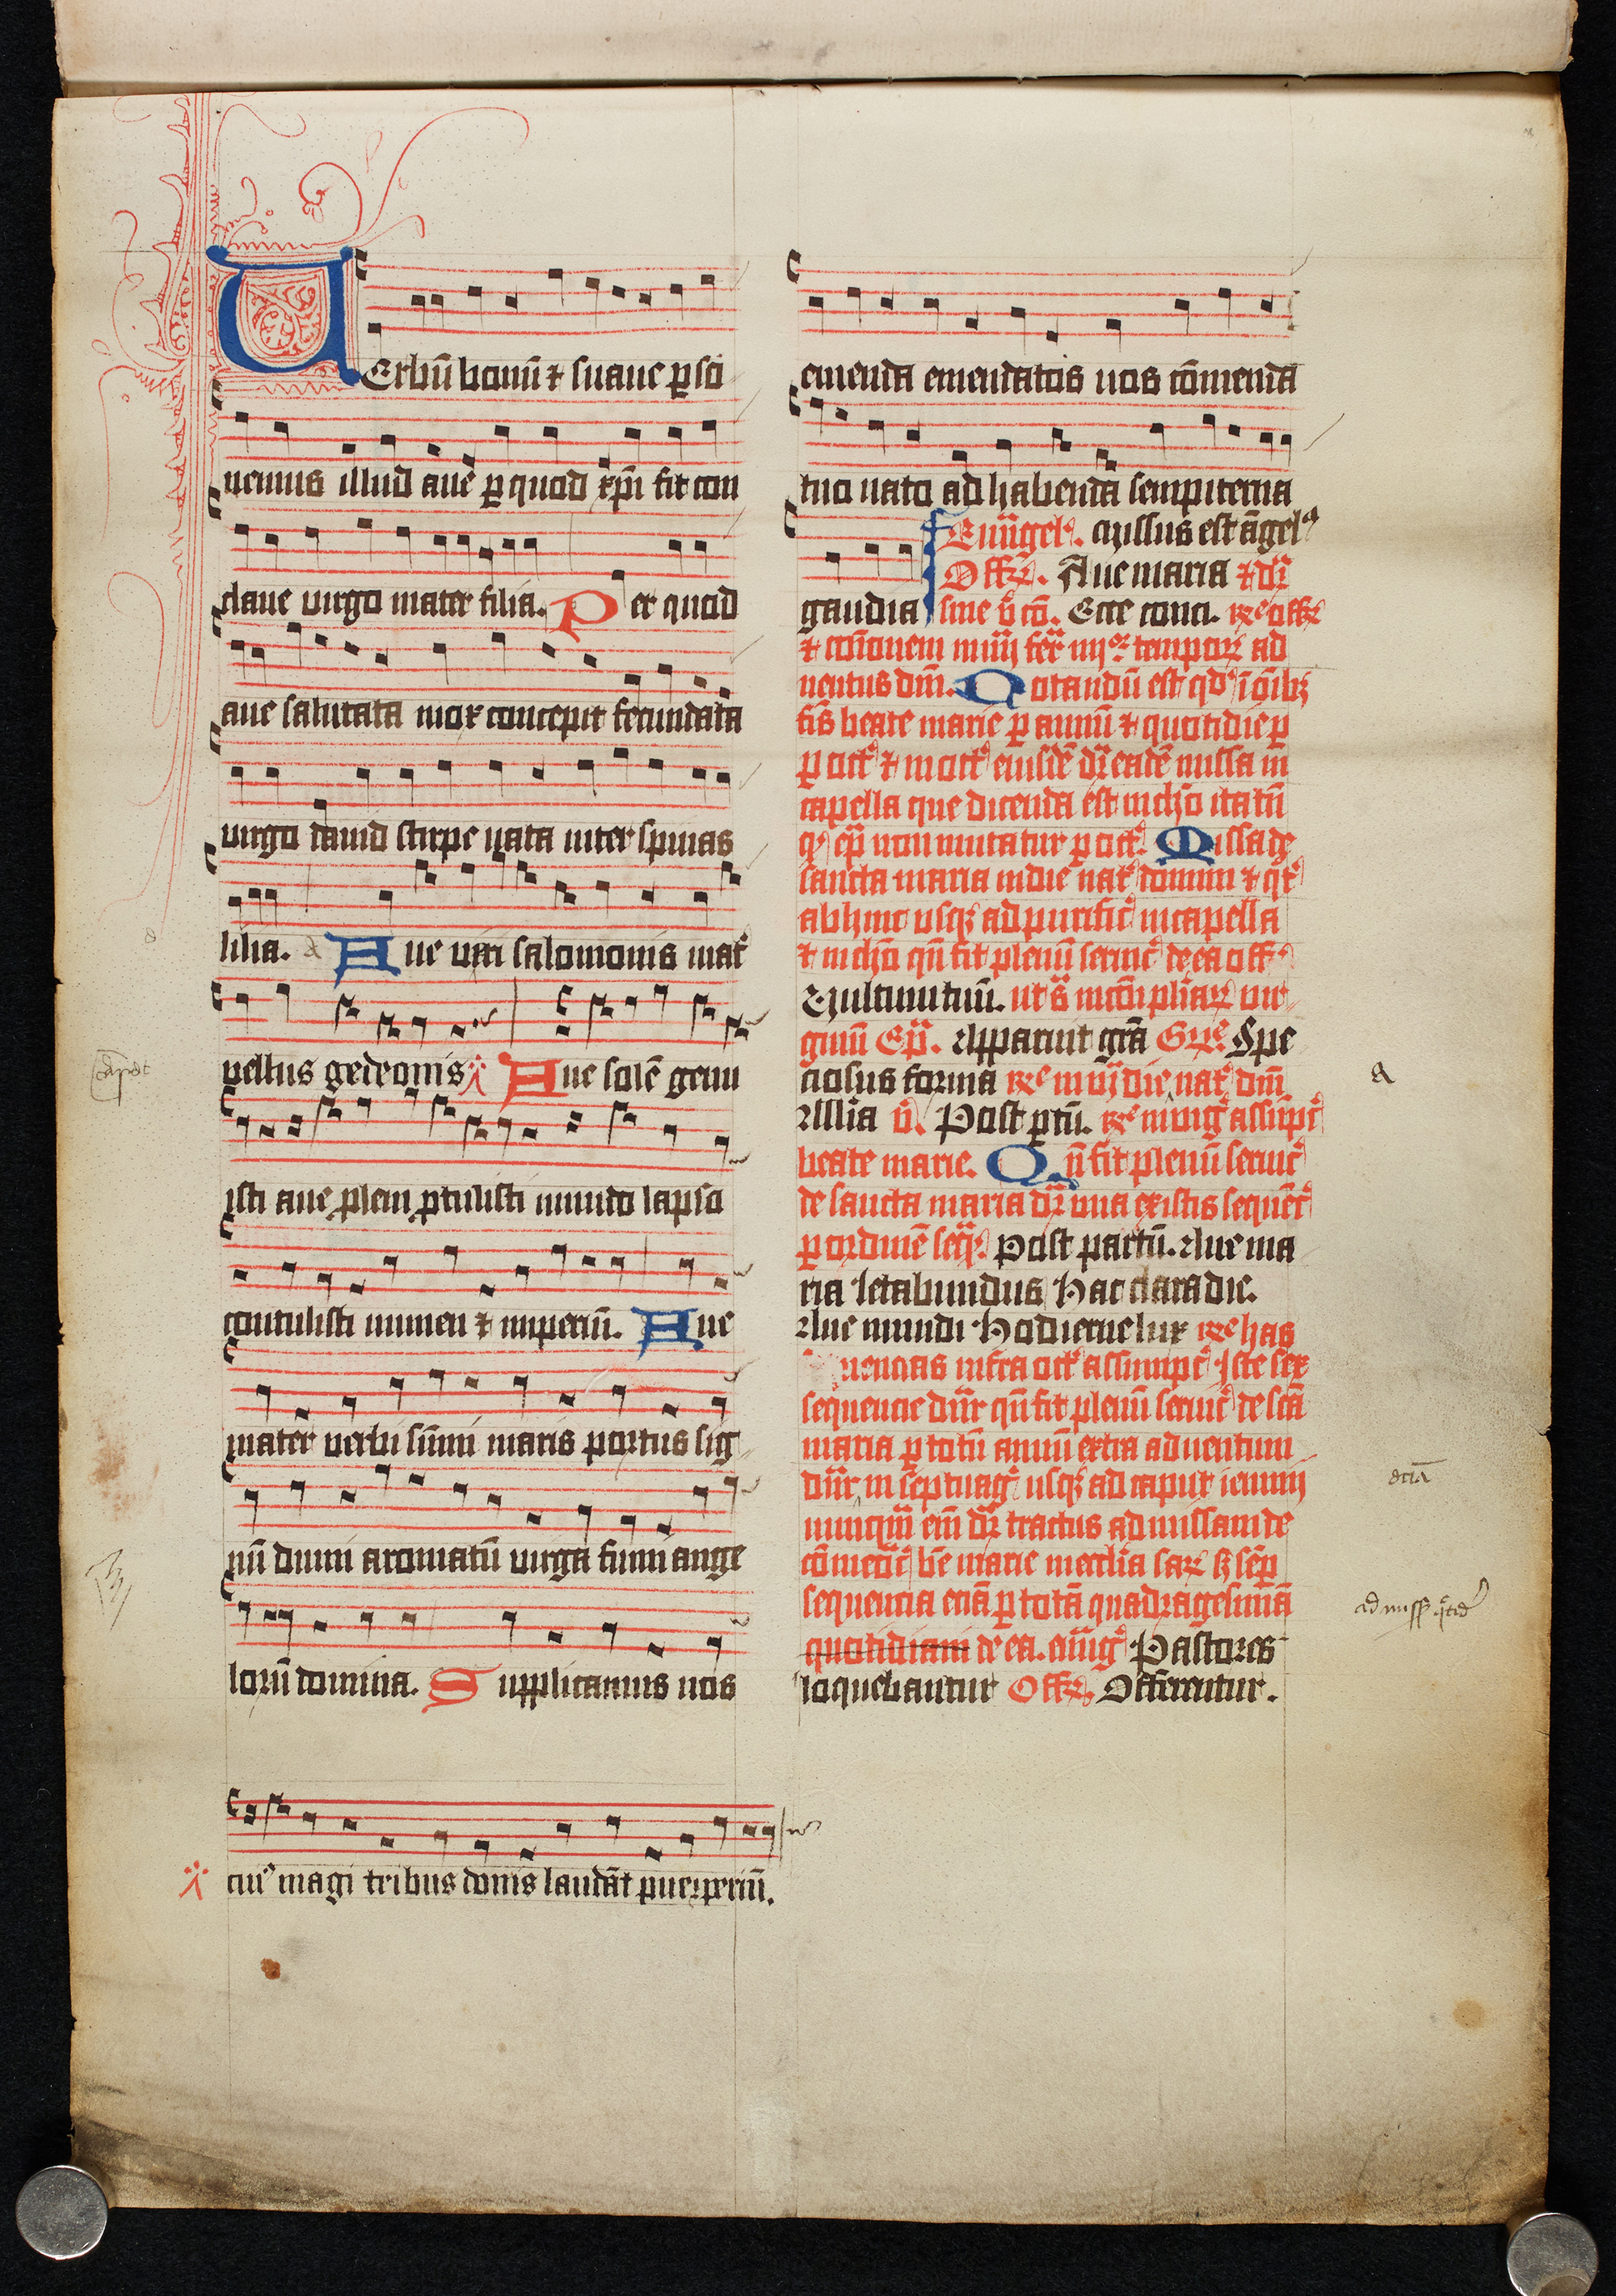 UErbū bonū ⁊ suaue ꝑso
nemus illud aue ꝑ quod xp̄i fit con
claue uirgo mater filia. Per quod
aue salutata mox concepit fecundata
uirgo dauid stirpe nata inter spinas
lilia. Aue ueri salomonis mat᷑
uellus gedeonis Aue solē genu
isti aue ꝓlem ꝓtulisti mundo lapso
contulisti numen ⁊ imperiū. Aue
mater uerbi sūmi maris portus sig
nū dumi aromatū uirga fumi ange
lorū domina. Supplicamus nos
cui᷒ magi tribus donis laudāt puerperiū.
emenda emendatos nos cōmenda
tuo nato ad habenda sempiterna
gaudia
Euūgel᷒. Missus est āgel᷒
Offr̄. Aue maria ⁊ dr̄
sine v̄ cō. Ecce conci. Re offr̄
⁊ cōionem in iiij fer̄ iiijor tempor̄ ad
uentus dm̄. Notandū est qd᷒ ī oīb3
fis̄ beate marie ꝑ annū ⁊ quotidie ꝑ
ꝑ oct᷒ ⁊ in oct᷒ eiusdē dr̄ eadē missa in
capella que dicenda est in cho ita tn̄
q᷒ ep̄ non mutatur ꝑ oct᷒. Missa de
sancta maria in die nat᷒ domini ⁊ qt᷒
abhinc usq3 ad purific᷒ in capella
⁊ in cho qn̄ fit plenū seruic᷒ de ea off᷒
Uultum tuū. ut s̄ in cōi pliar̄ uir
ginū Ep̄. Apparuit grā Gre Spe
ciosus forma Re in vj die nat᷒ dm̄
Allia v̄. Post ꝑtū. Re in uig᷒ assūpt᷒
beate marie. Qn̄ fit plenū seruic᷒
de sancta maria dr̄ una ex istis sequēc᷒
ꝑ ordinē seq̄. Post partū. Aue ma
ria Letabundus Hac clara die.
Aue mundi Hodierne lux Re has
infra oct᷒ assumpt᷒ Iste sex
sequencie dn̄r qn̄ fit plenū seruic᷒ de scā
maria ꝑ totū annū extra aduentum
dn̄r in septuag᷒ usq3 ad caput ieiunij
nunquā eīn dr̄ tractus ad missam de
cōmeōr᷒ bē marie in ecclia sar̄ s3 sēp
sequencia eciā ꝑ totā quadragesimā
quotidiani de ea. euūg᷒ Pastores
loquebantur Offr̄. Offerentur.
a
eciā